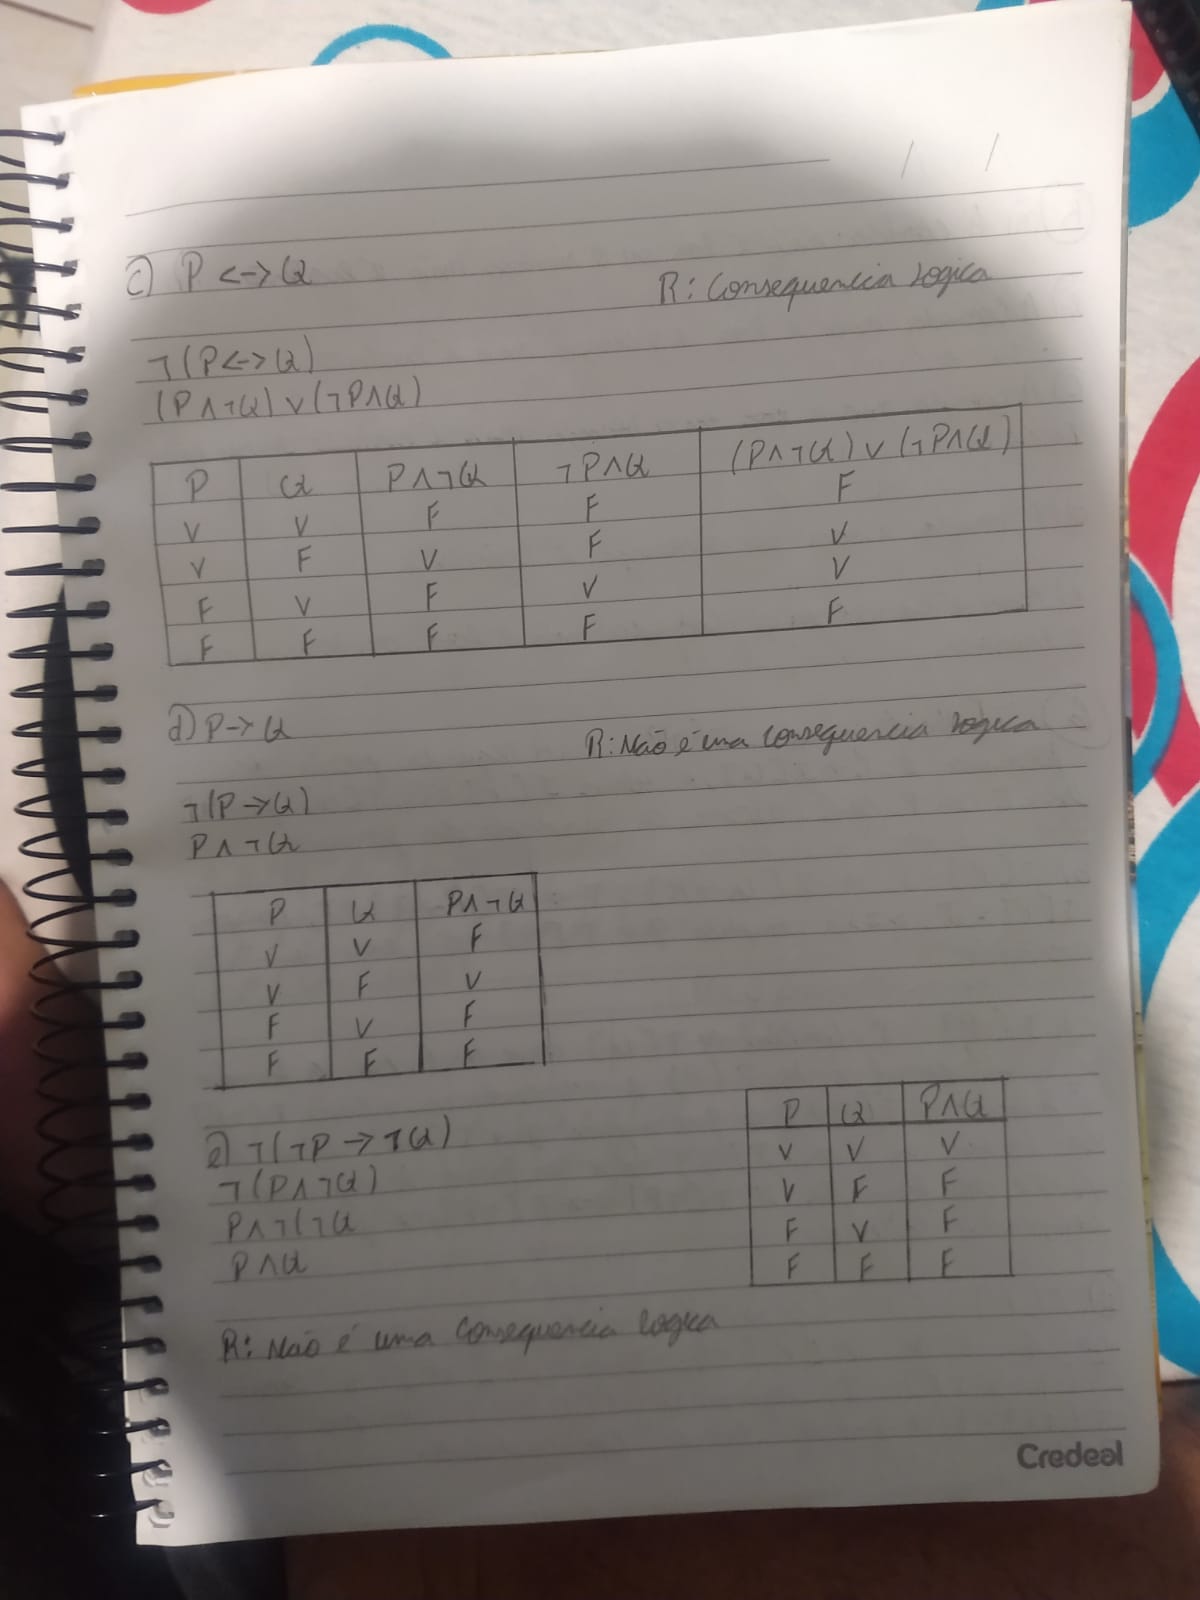 / /
c) P <-> Q
R: Consequencia Logica
¬(P<->Q)
(P∧¬Q)∨(¬P∧Q)
P Q P∧¬Q ¬P∧Q (P∧¬Q)∨(¬P∧Q)
V V F F F
V F V F V
F V F V V
F F F F F
d) P->Q
R: Não é uma consequencia logica
¬(P->Q)
P∧¬Q
P Q P∧¬Q
V V F
V F V
F V F
F F F
e) ¬(¬P->¬Q)
¬(P∧¬Q)
P∧¬(¬Q
P∧Q
P Q P∧Q
V V V
V F F
F V F
F F F
R: Não é uma consequencia logica
Credeal